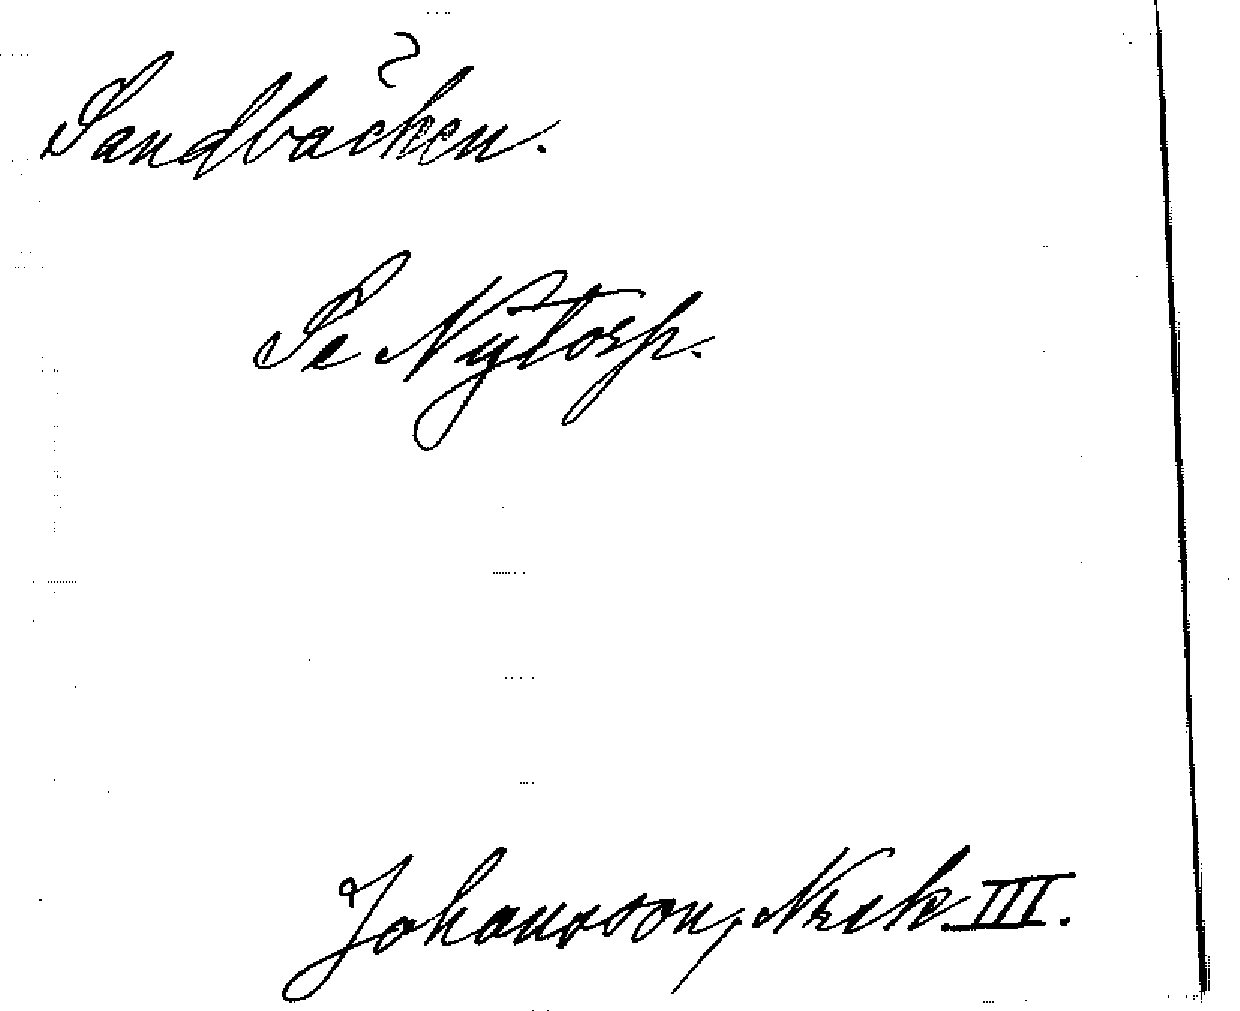 Sandbacken.
Se Nytorp.
Johansson, Nrik III.